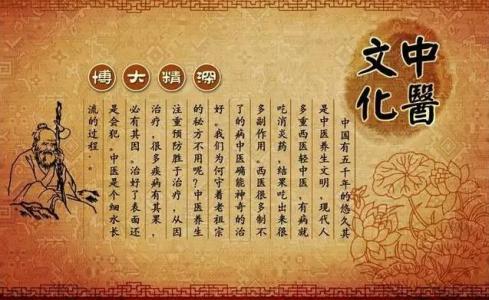 中醫
文化
博大精深
中国有五千年的悠久其
是中医养生文明。现代人
多重西医轻中医，有病就
吃消炎药，结果吃出来很
多副作用。西医很多制不
了的病中医确能神奇的治
好。我们为何守着老祖宗
的秘方不用呢？中医养生
注重预防胜于治疗，从因
治疗，很多疾病有其果，
必有其因。治好了表面还
是会犯。中医是个细水长
流的过程。。